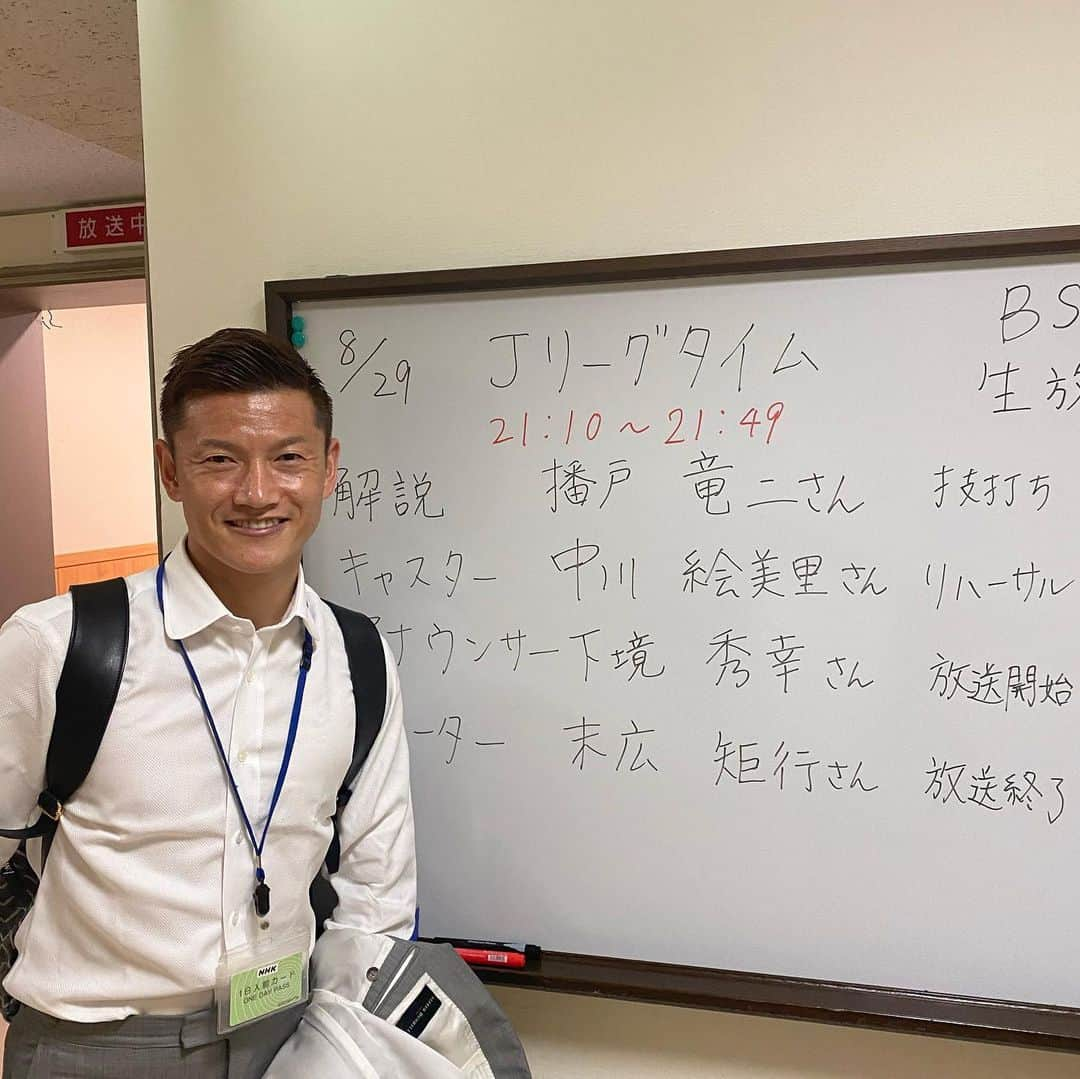 放送中
8/29 Jリーグタイム BS
21:10～21:49 生放
解説 播戸 竜二さん 技打ち
キャスター 中川 絵美里さん リハーサル
アナウンサー 下境 秀幸さん 放送開始
ーター 末広 矩行さん 放送終了
NHK
1日入館カード
ONE DAY PASS